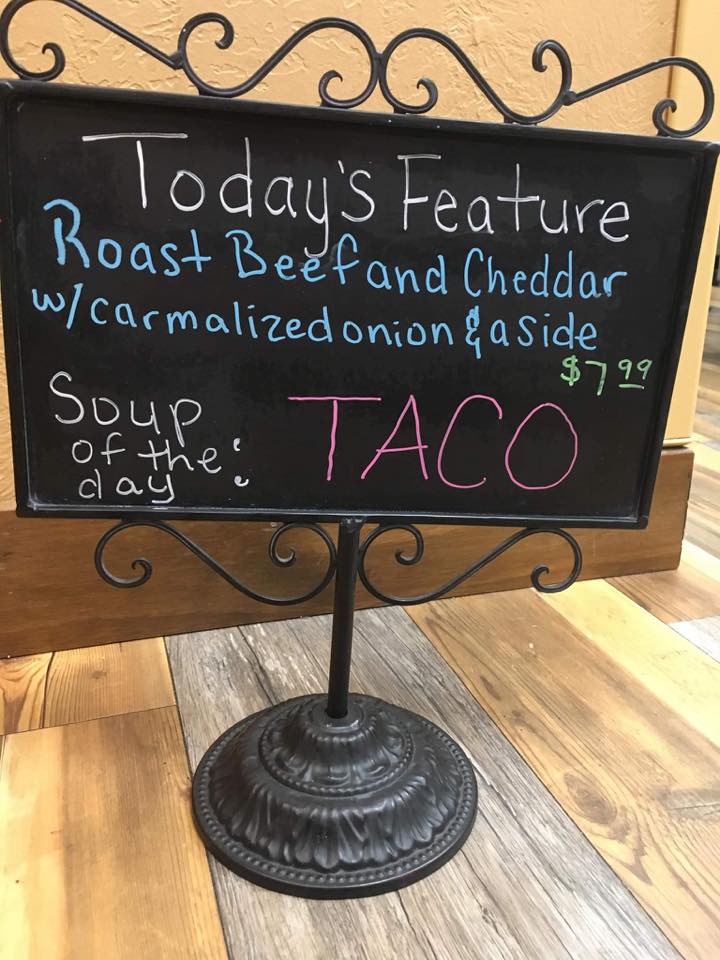 Today's Feature
Roast Beef and Cheddar
w/carmalized onion & a side
$7 99
Soup
of the
day :
TACO